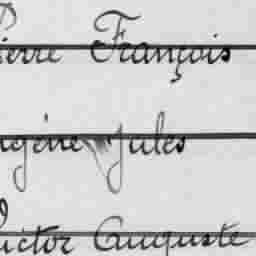 Pierre François
ugène Jules
Victor Auguste